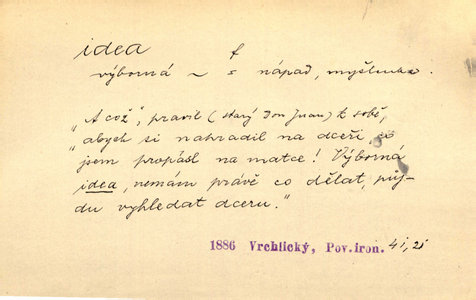 idea f
výborná ~ = nápad, myšlenka.
„A což", pravil (starý Don Juan) k sobě,
„abych si nahradil na dceři, co
jsem propásl na matce! Výborná
idea, nemám právě co dělat, půj-
du vyhledat dceru."
1886 Vrchlický, Pov.iron.